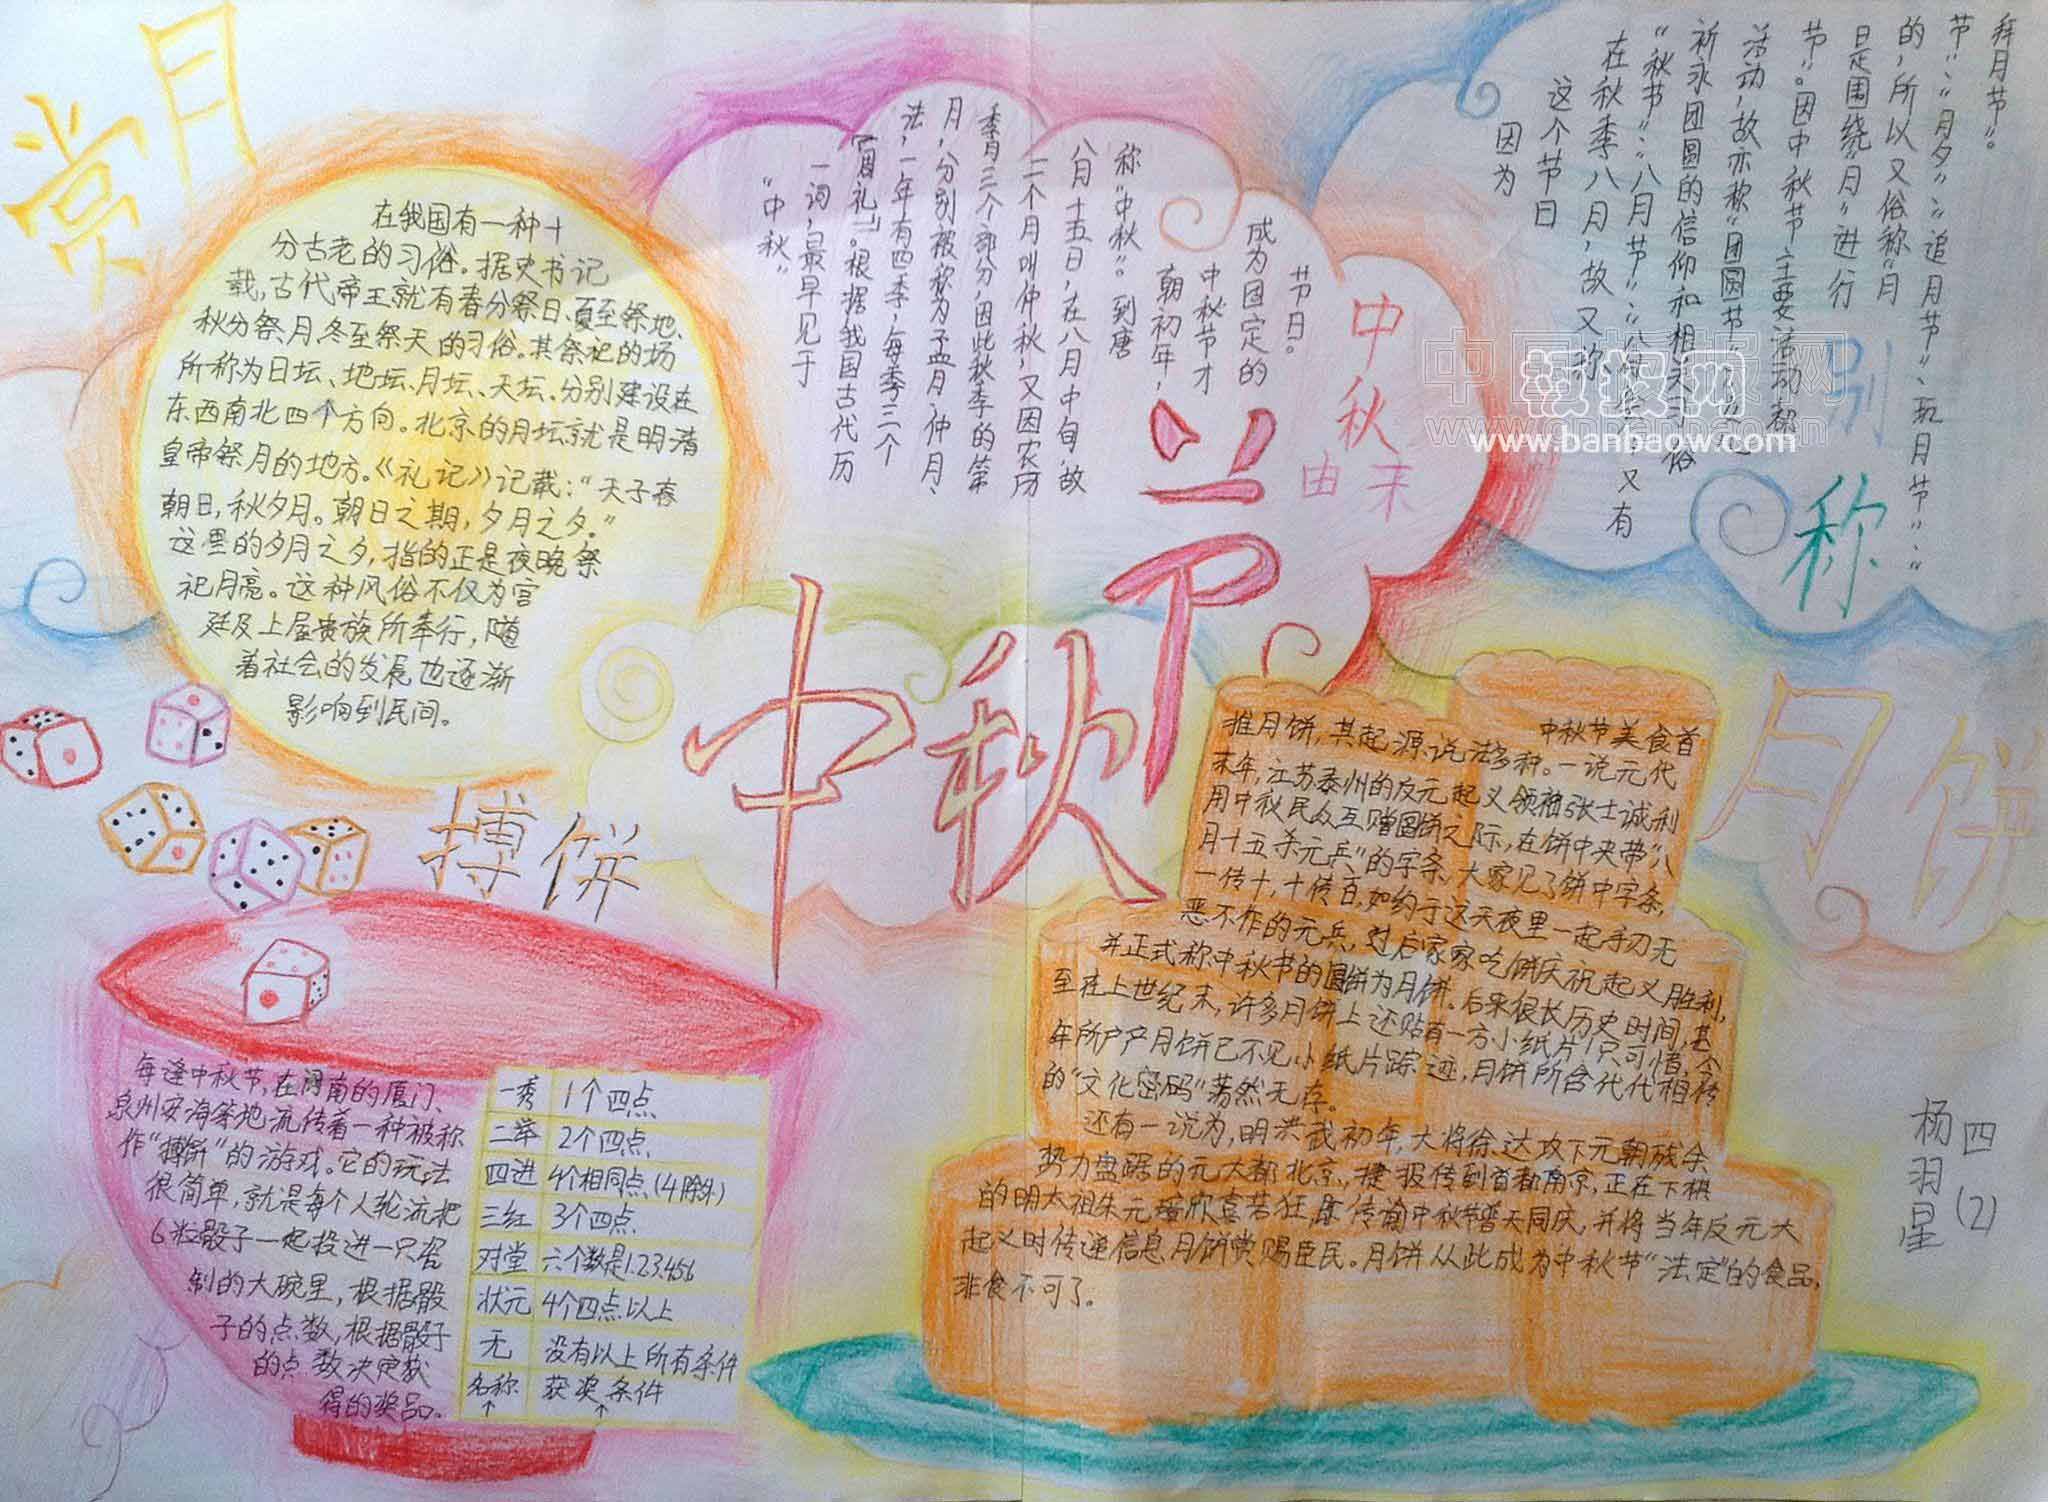 赏月
在我国有一种十
分古老的习俗。据史书记
载,古代帝王就有春分祭日、夏至祭地、
秋分祭月、冬至祭天的习俗。其祭祀的场
所称为日坛、地坛、月坛、天坛。分别建设在
东西南北四个方向。北京的月坛就是明清
皇帝祭月的地方。《礼记》记载:“天子春
朝日,秋夕月。朝日之期,夕月之夕。”
这里的夕月之夕,指的正是夜晚祭
祀月亮。这种风俗不仅为宫
廷及上层贵族所奉行,随
着社会的发展也逐渐
影响到民间。
中秋节
中秋
由来
“中秋”
一词,最早见于
《周礼》。根据我国古代历
法,一年有四季,每季三个
月,分别被称为孟月、仲月、
季月三个部分,因此秋季的第
二个月叫仲秋,又因农历
八月十五日,在八月中旬,故
称“中秋”。到唐
朝初年,
中秋节才
成为固定的
节日。
别称
因为
这个节日
在秋季八月,故又称
“秋节”、“八月节”、“八月
又有
祈求团圆的信仰和相关习俗
活动,故亦称“团圆节”
节”。因中秋节主要活动都
是围绕“月”进行
的,所以又俗称“月
节”、“月夕”、“追月节”、玩月节”、“
拜月节”。
中国板报网
www.banbaow.com
搏饼
每逢中秋节,在闽南的厦门、
泉州安海等地流传着一种被称
作“搏饼”的游戏。它的玩法
很简单,就是每个人轮流把
6粒骰子一起投进一只瓷
制的大碗里,根据骰
子的点数,根据骰子
的点数决定获
得的奖品。
一秀 1个四点
二举 2个四点
四进 4个相同点(4除外)
三红 3个四点
对堂 六个数是1.2.3.4.5.6
状元 4个四点以上
无 没有以上所有条件
名称 获奖条件
↑ ↑
月饼
中秋节美食首
推月饼,其起源说法多种。一说元代
末年,江苏泰州的反元起义领袖张士诚利
用中秋民众互赠圆饼之际,在饼中夹带“八
月十五杀元兵”的字条,大家见了饼中字条,
一传十,十传百,如约于这天夜里一起手刃无
恶不作的元兵,过后家家吃饼庆祝起义胜利,
并正式称中秋节的圆饼为月饼。后来很长历史时间,甚
至在上世纪末,许多月饼上还贴有一方小纸片!只可惜,今
年所产月饼已不见小纸片踪迹,月饼所含代代相传
的“文化密码”荡然无存。
还有一说为,明洪武初年,大将徐达攻下元朝残余
势力盘踞的元大都北京,捷报传到首都南京,正在下棋
的明太祖朱元璋欣喜若狂,即传谕中秋节普天同庆,并将当年反元大
起义时传递信息月饼赏赐臣民。月饼从此成为中秋节“法定”的食品,
非食不可了。
四(2)
杨羽星